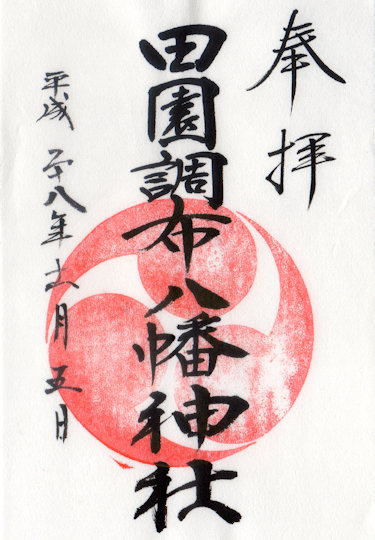 奉拝
田園調布八幡神社
平成二十八年十一月五日